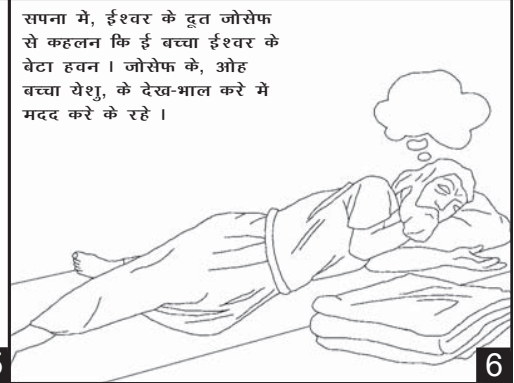 सपना में, ईश्वर के दूत जोसेफ
से कहलन कि ई बच्चा ईश्वर के
बेटा हवन । जोसेफ के, ओह
बच्चा येशु, के देख-भाल करे में
मदद करे के रहे ।
6